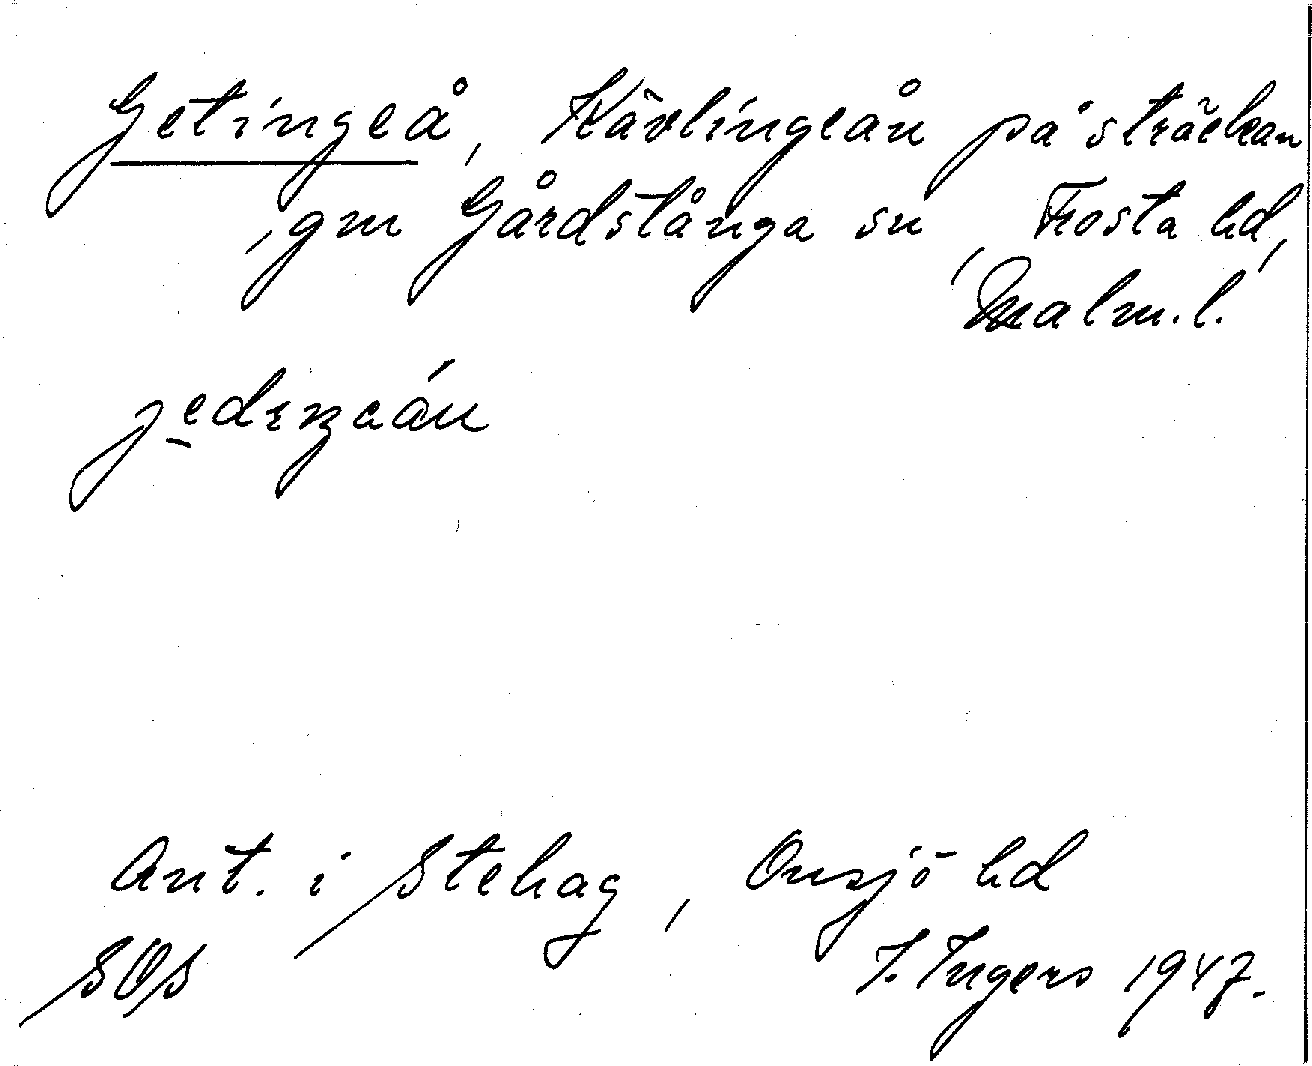 Getingeå, Kävlingeån på sträckan
gm Gårdstånga sn, Frosta hd,
Malm.l.
Ant. i Stehag, Onsjö hd
SOS I. Ingers 1947.